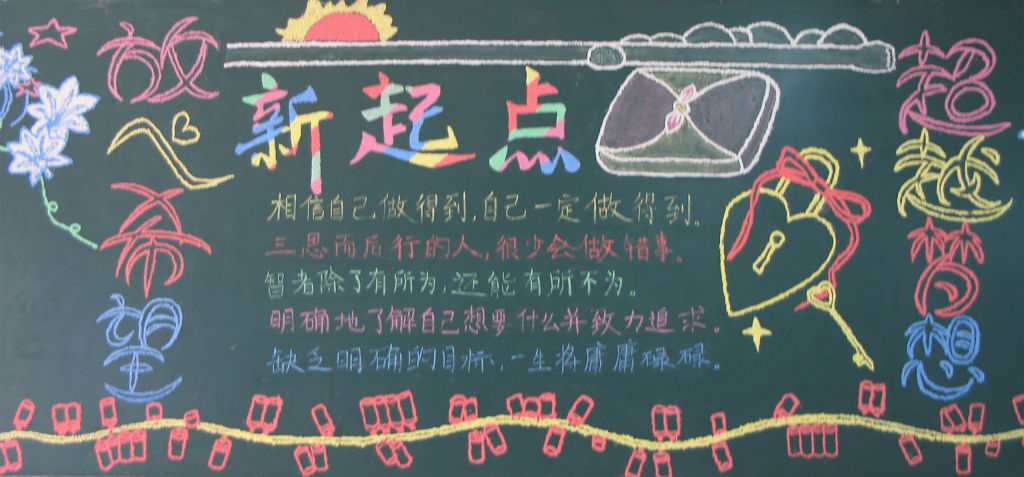 放飞希望
新起点
相信自己做得到,自己一定做得到。
三思而后行的人,很少会做错事。
智者除了有所为,还能有所不为。
明确地了解自己想要什么并致力追求。
缺乏明确的目标,一生将庸庸碌碌。
超越梦想